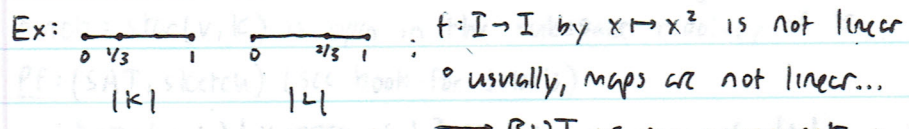 Ex: 0 1/3 1 0 2/3 1 ; f: I → I by x ↦ x² is not linear
|K| |L| • usually, maps are not linear...